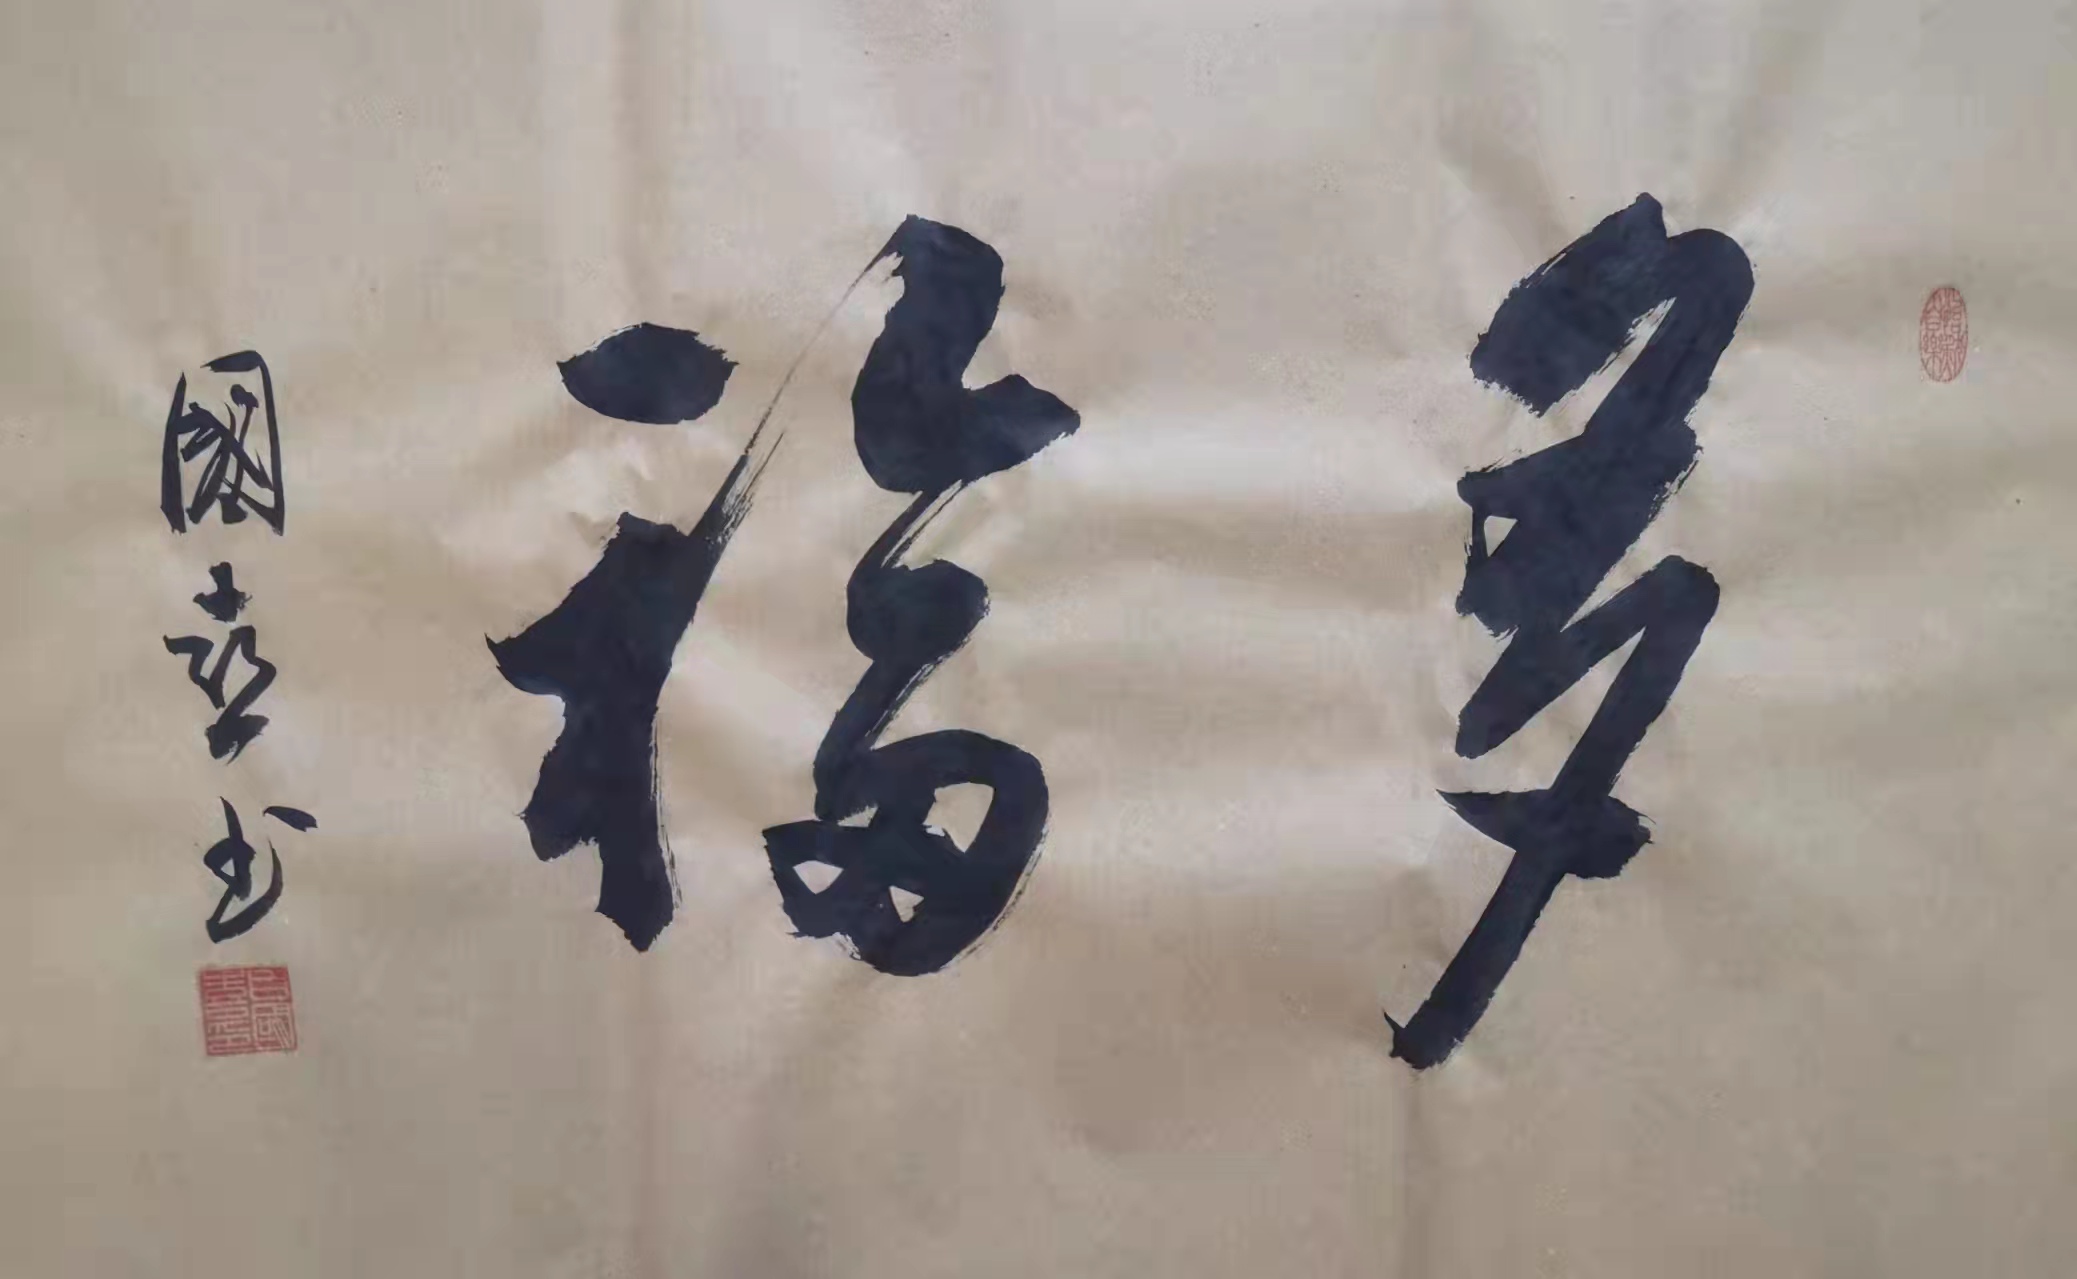 多福
國喜书